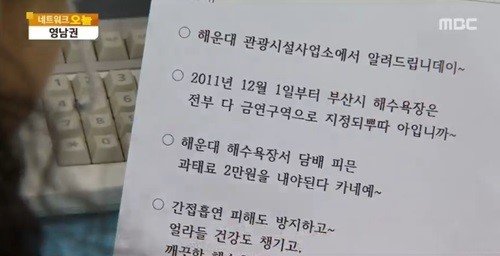 네트워크 오늘
영남권
MBC
○ 해운대 관광시설사업소에서 알려드립니데이~
○ 2011년 12월 1일부터 부산시 해수욕장은
전부 다 금연구역으로 지정되뿌따 아입니까~
○ 해운대 해수욕장서 담배 피믄
과태료 2만원을 내야된다 카네예~
○ 간접흡연 피해도 방지하고~
얼라들 건강도 챙기고,
깨끗한